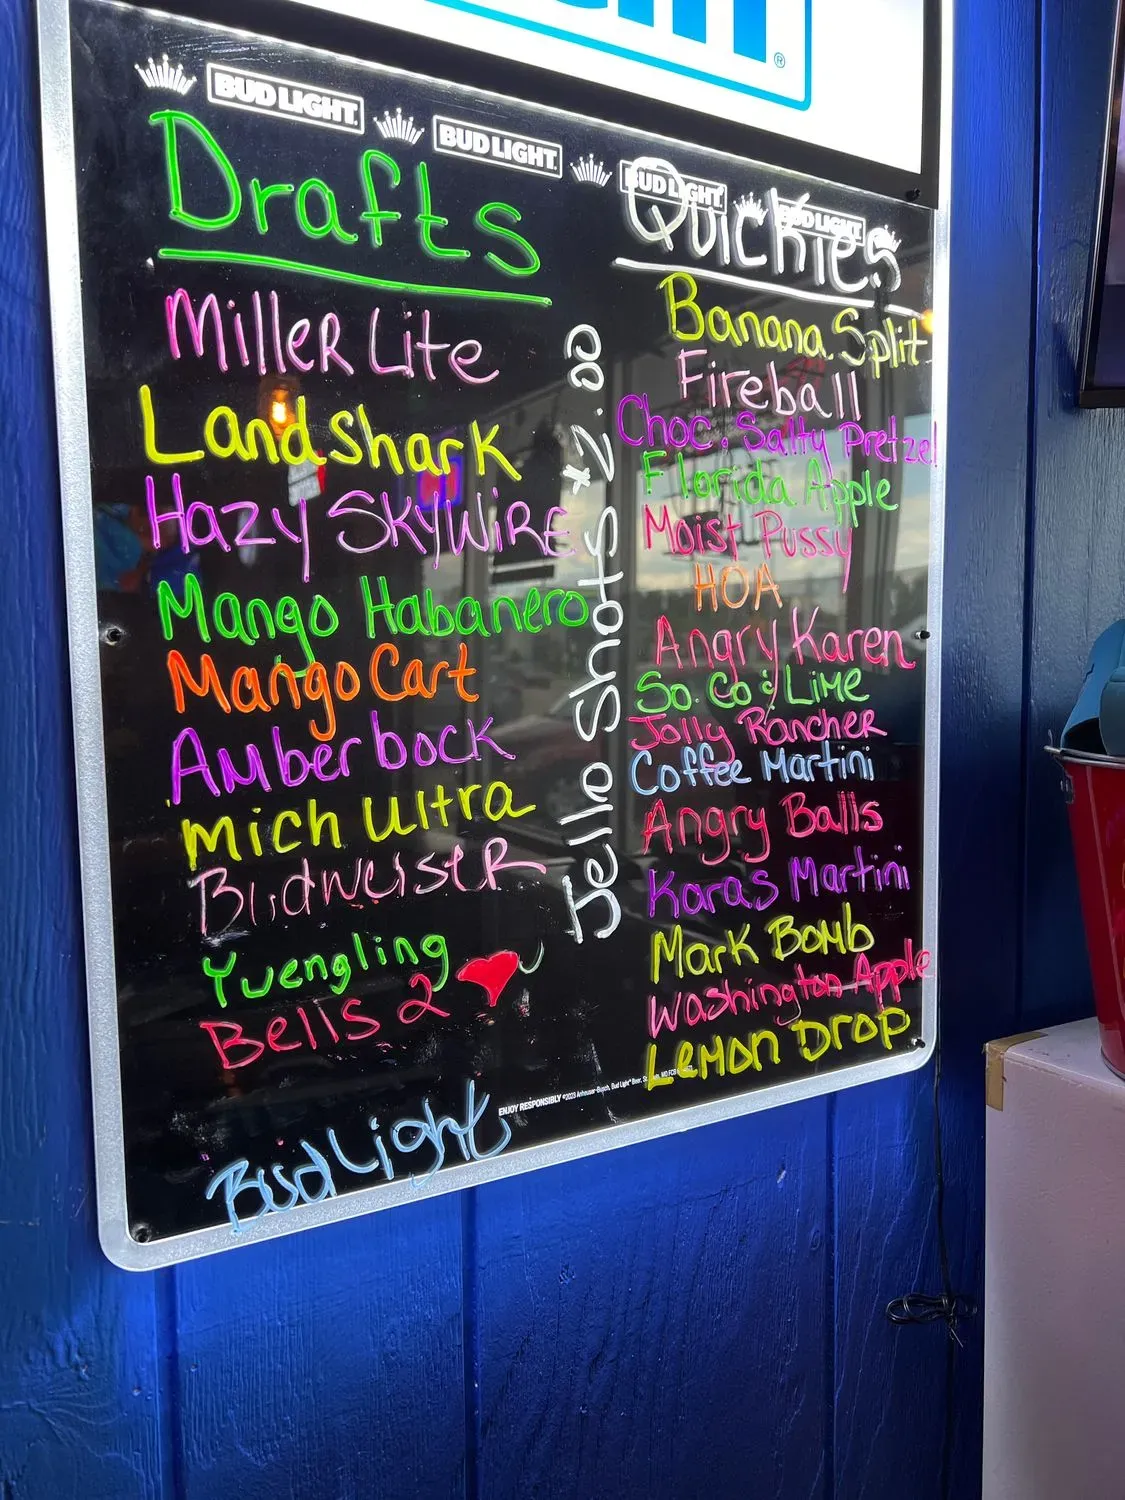 BUD LIGHT. BUD LIGHT. BUD LIGHT. BUD LIGHT.
Drafts
Miller Lite
Landshark
Hazy SKYWiRE
Mango Habanero
Mango Cart
Amber bock
Mich Ultra
BudweiseR
Yuengling
Bells 2
Bud Light
Jello Shots *2.00
Quickies
Banana Split
Fireball
Choc. Salty Pretzel
Florida Apple
Moist Pussy
HOA
Angry Karen
So. Co & Lime
Jolly Rancher
Coffee Martini
Angry Balls
Karas Martini
Mark Bomb
Washington Apple
Lemon Drop
ENJOY RESPONSIBLY ©2023 Anheuser-Busch, Bud Light® Beer,